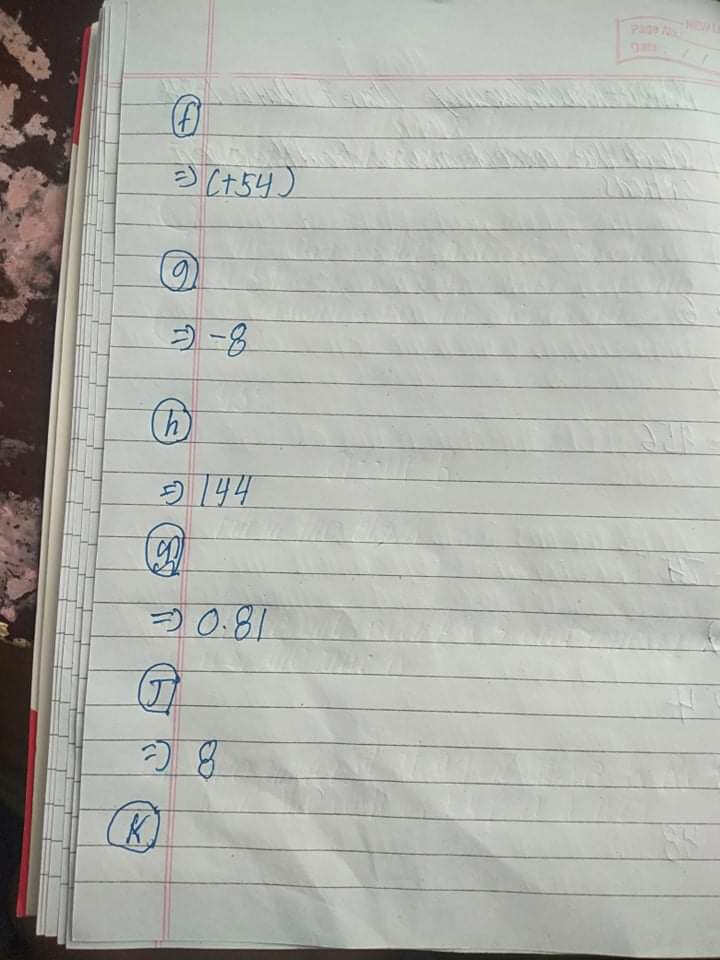 Page No.
Date / /
f
⇒ (+54)
g
⇒ -8
h
⇒ 144
⇒ 0.81
J
⇒ 8
K